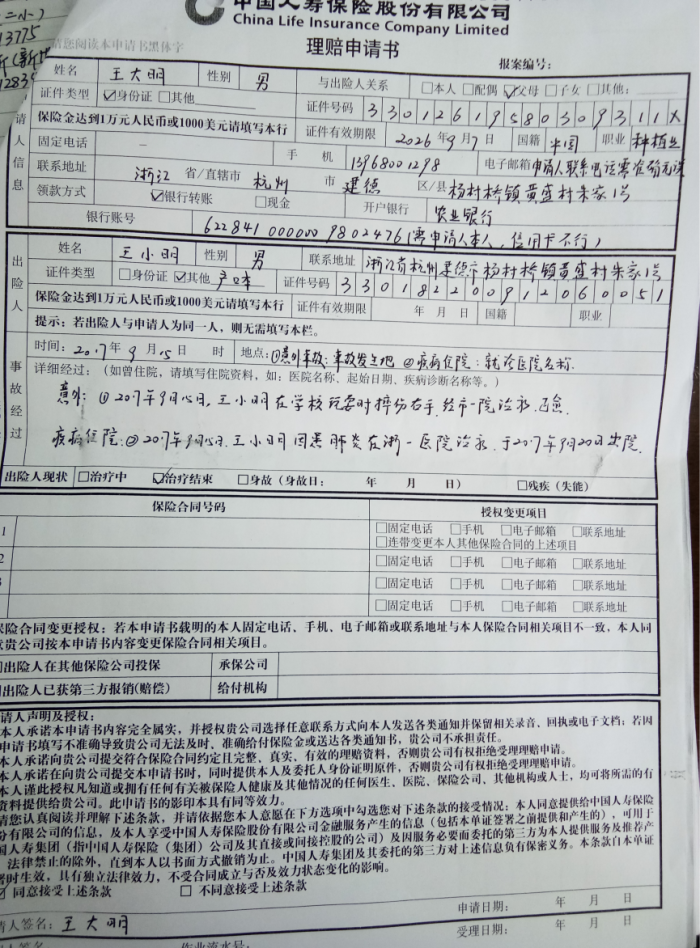 二小)
13775
中国人寿保险股份有限公司
China Life Insurance Company Limited
请您阅读本申请书黑体字
理赔申请书
报案编号:
请人信息
姓名 王大明 性别 男 与出险人关系 □本人 □配偶 ☑父母 □子女 □其他:
证件类型 ☑身份证 □其他 证件号码 33012619580309311X
保险金达到1万元人民币或1000美元请填写本行 证件有效期限 2026年9月7日 国籍 中国 职业 种植业
固定电话 - 手机 13968001298 电子邮箱 申请人联系电话需准确无误
联系地址 浙江 省/直辖市 杭州 市 建德 区/县 杨村桥镇黄盛村朱家1号
领款方式 ☑银行转账 □现金 开户银行 农业银行
银行账号 622841 000000 9802476 (需申请人本人, 信用卡不行)
出险人
姓名 王小明 性别 男 联系地址 浙江省杭州建德市杨村桥镇黄盛村朱家1号
证件类型 □身份证 ☑其他 户口本 证件号码 330182200912060051
保险金达到1万元人民币或1000美元请填写本行 证件有效期限 年 月 日 国籍 职业
提示: 若出险人与申请人为同一人, 则无需填写本栏。
事故经过
时间: 2017年9月15日 时 地点: ①意外事故: 事故发生地 ②疾病住院: 就诊医院名称
详细经过: (如曾住院, 请填写住院资料, 如: 医院名称、起始日期、疾病诊断名称等。)
意外: ① 2017年9月15日, 王小明在学校玩耍时摔伤右手, 经市一院治疗,
疾病住院: ② 2017年9月15日, 王小明因患肺炎在浙一医院治疗, 于2017年9月20日出院.
出险人现状 □治疗中 ☑治疗结束 □身故 (身故日: 年 月 日) □残疾 (失能)
保险合同号码 授权变更项目
1 □固定电话 □手机 □电子邮箱 □联系地址
□连带变更本人其他保险合同的上述项目
2 □固定电话 □手机 □电子邮箱 □联系地址
□固定电话 □手机 □电子邮箱 □联系地址
□固定电话 □手机 □电子邮箱 □联系地址
保险合同变更授权: 若本申请书载明的本人固定电话、手机、电子邮箱或联系地址与本人保险合同相关项目不一致, 本人同
意贵公司按本申请书内容变更保险合同相关项目。
出险人在其他保险公司投保 承保公司
出险人已获第三方报销(赔偿) 给付机构
请人声明及授权:
本人承诺本申请书内容完全属实, 并授权贵公司选择任意联系方式向本人发送各类通知并保留相关录音、回执或电子文档; 若因
申请书填写不准确导致贵公司无法及时、准确给付保险金或送达各类通知书, 贵公司不承担责任。
本人承诺向贵公司提交符合保险合同约定且完整、真实、有效的理赔资料, 否则贵公司有权拒绝受理理赔申请。
本人承诺在向贵公司提交本申请书时, 同时提供本人及委托人身份证明原件, 否则贵公司有权拒绝受理理赔申请。
本人谨此授权凡知道或拥有任何有关被保险人健康及其他情况的任何医生、医院、保险公司、其他机构或人士, 均可将所需的有
资料提供给贵公司。此申请书的影印本具有同等效力。
请您认真阅读并理解下述条款, 并请依据您本人意愿在下方选项中勾选您对下述条款的接受情况: 本人同意提供给中国人寿保险
份有限公司的信息, 及本人享受中国人寿保险股份有限公司金融服务产生的信息 (包括本单证签署之前提供和产生的), 可用于
国人寿集团 (指中国人寿保险 (集团) 公司及其直接或间接控股的公司) 及因服务必要而委托的第三方为本人提供服务及推荐产
法律禁止的除外, 直到本人以书面方式撤销为止。中国人寿集团及其委托的第三方对上述信息负有保密义务。本条款自本单证
署时生效, 具有独立法律效力, 不受合同成立与否及效力状态变化的影响。
☑ 同意接受上述条款 □ 不同意接受上述条款
申请日期: 年 月 日
请人签名: 王大明
受理日期: 年 月 日
作业流水号: